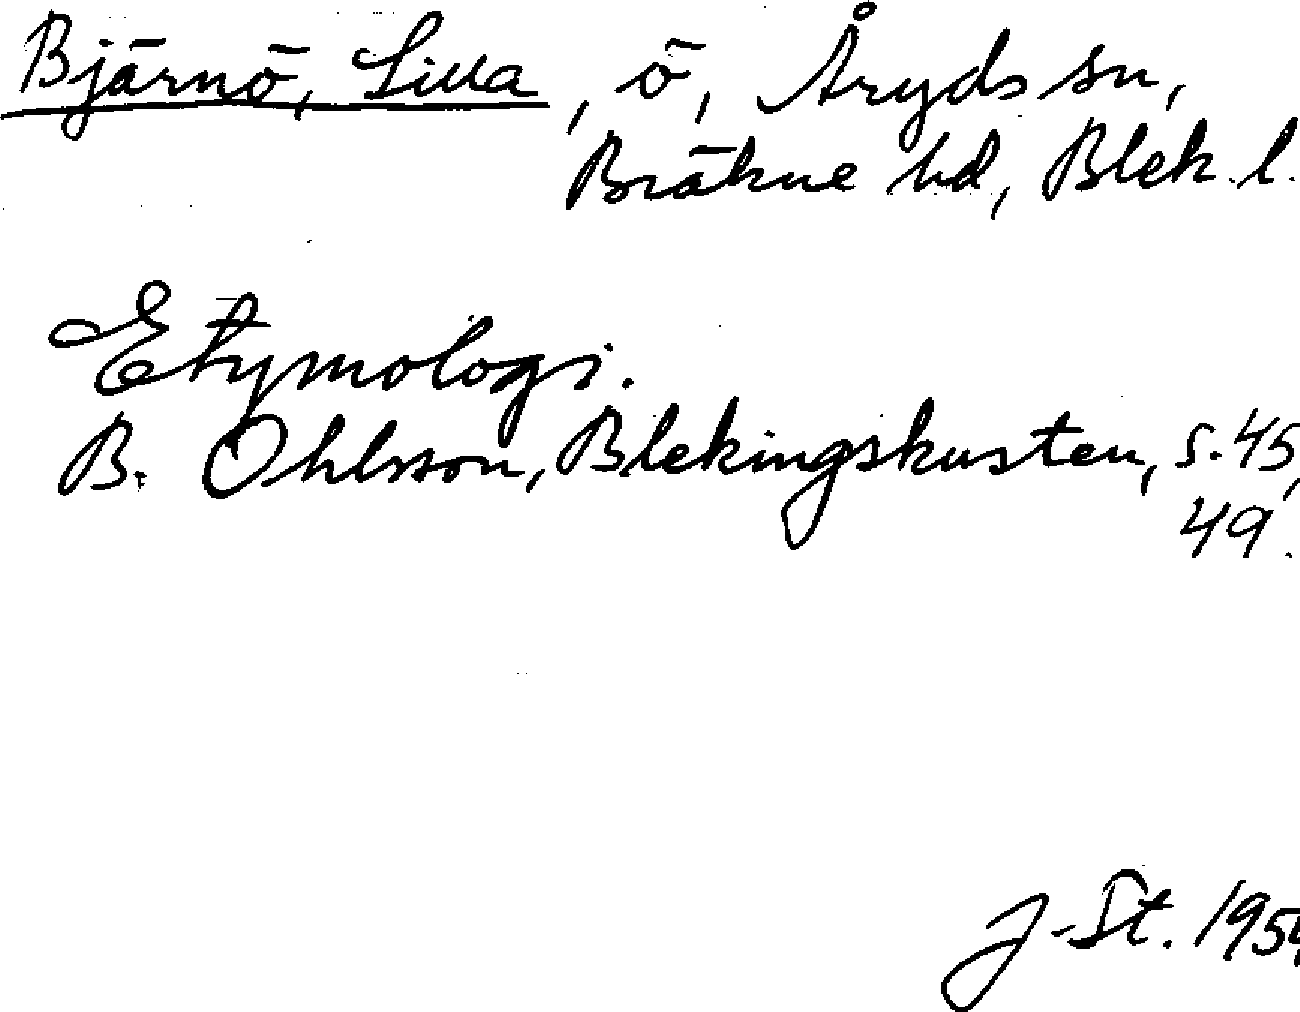 Bjärnö, Lilla, ö, Åryds sn,
Bräkne hd, Blek. l.
Etymologi.
B. Ohlsson, Blekingskusten, s. 45,
49.
J-St. 1954